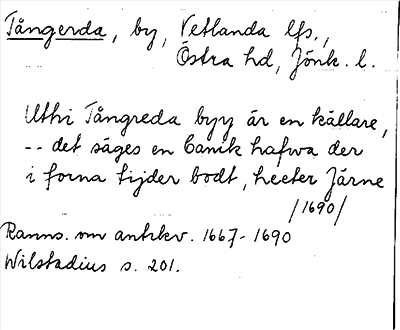 Tångerda, by, Vetlanda lfs.,
Östra hd, Jönk. l.
Uthi Tångreda byy är en källare,
-- det säges en Canik hafwa der
i forna tijder bodt, heeter Järne
/1690/
Ranns. om antikv. 1667-1690
Wilstadius s. 201.